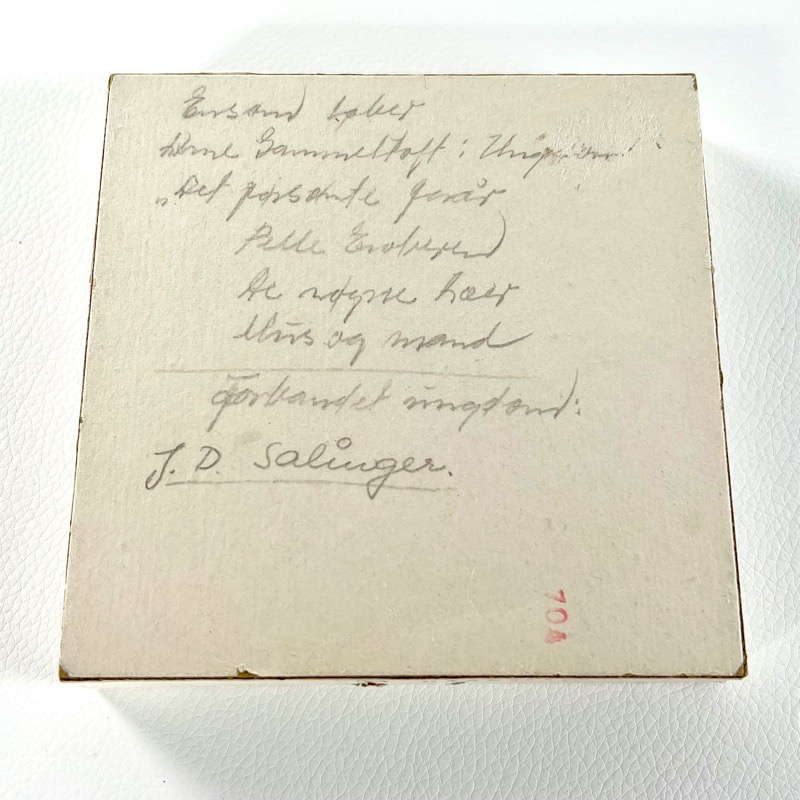 Ensom løber
Arne Gammeltoft:
"Det forsømte forår
Pelle Erobrend
De nøgne træer
Mus og mænd
Forbandet ungdom:
J. D. Salinger.
704